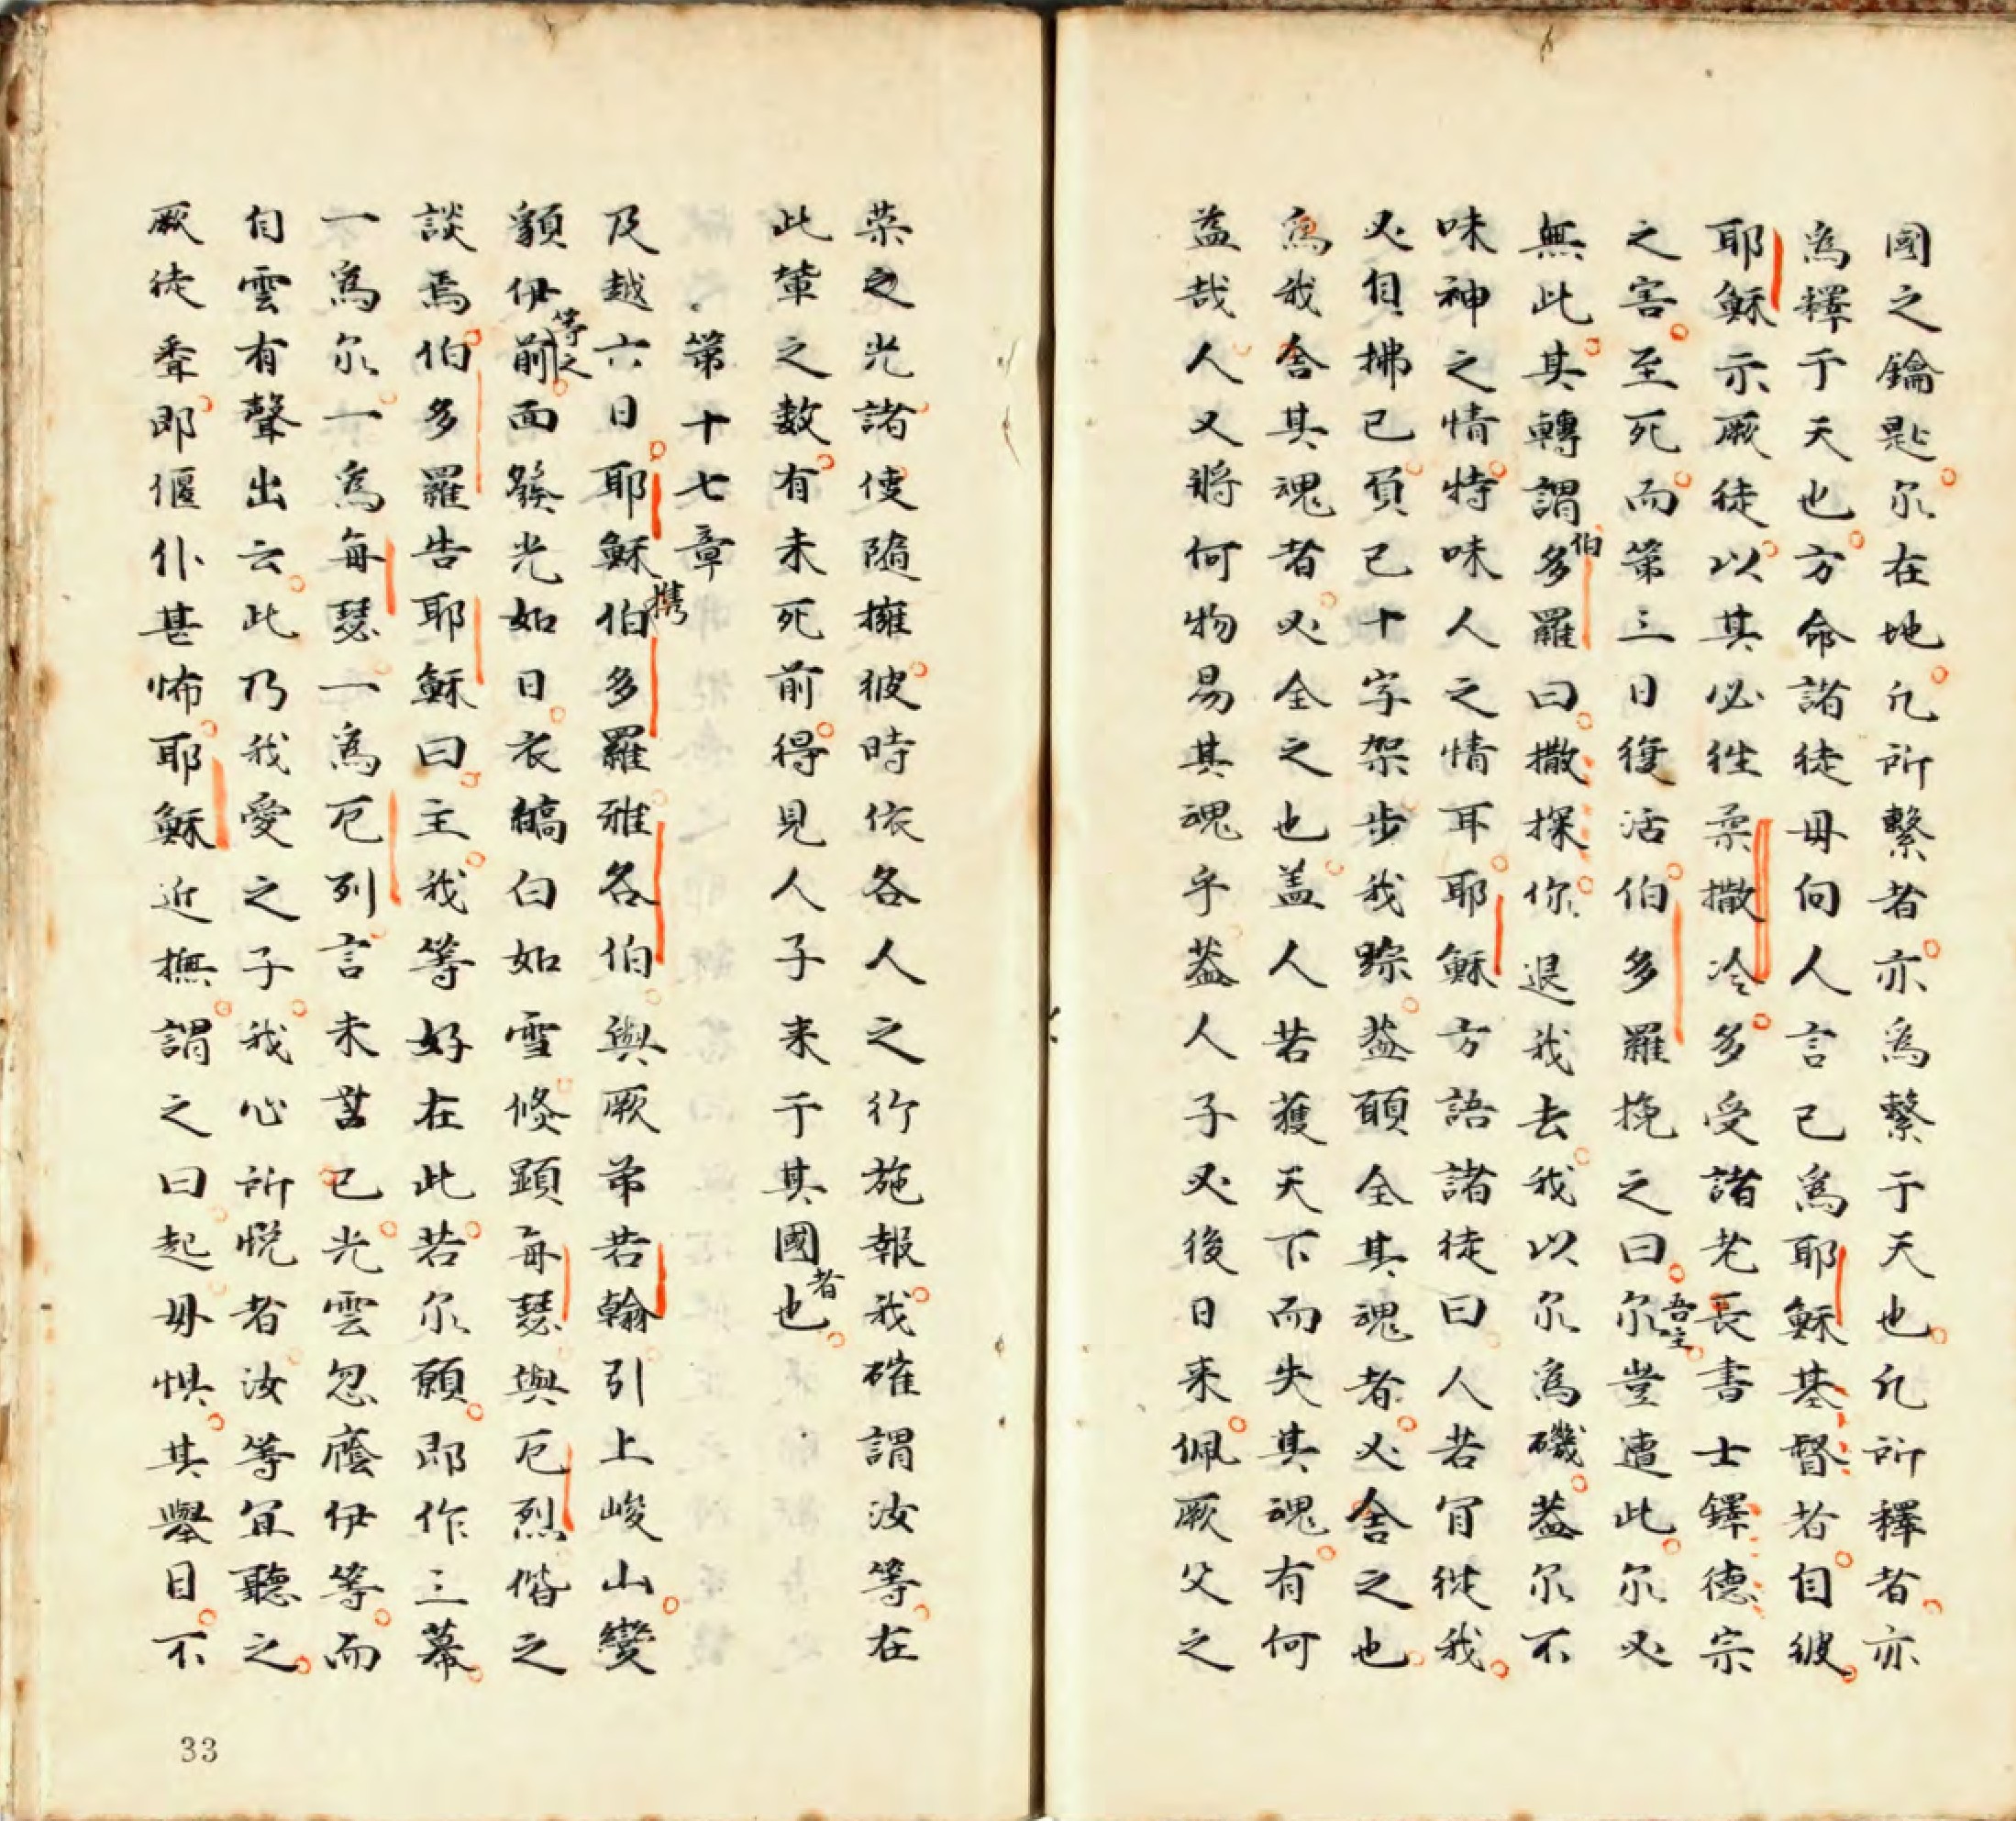 國之鑰匙尔在地凢所繫者亦為繫于天也凢所釋者亦
為釋于天也方命諸徒毋向人言己為耶穌基督者自彼
耶穌示厥徒以其必徃柔撒冷多受諸老長書士鐸德宗
之害至死而第三日復活伯多羅挽之曰尔吾主豈遭此尔必
無此其轉謂伯多羅曰撒探你退我去我以尔為磯葢尔不
味神之情特味人之情耳耶穌方語諸徒曰人若肎従我
必自拂己負己十字架步我踪葢願全其魂者必舍之也
為我舍其魂者必全之也盖人若獲天下而失其魂有何
益哉人又將何物易其魂乎葢人子必後日来佩厥父之
荣之光諸使隨擁彼時依各人之行施報我確謂汝等在
此輩之数有未死前得見人子来于其國者也
第十七章
及越六日耶穌携伯多羅雅各伯與厥弟若翰引上峻山變
貌伊等之前面發光如日衣縞白如雪倐顯每瑟與厄烈偕之
談焉伯多羅告耶穌曰主我等好在此若尔願即作三幕
一為尔一為每瑟一為厄列言未苔已光雲忽廕伊等而
自雲有聲出云此乃我愛之子我心所悅者汝等宜聽之
厥徒聽即偃仆甚怖耶穌近撫謂之曰起毋惧其舉目不
33